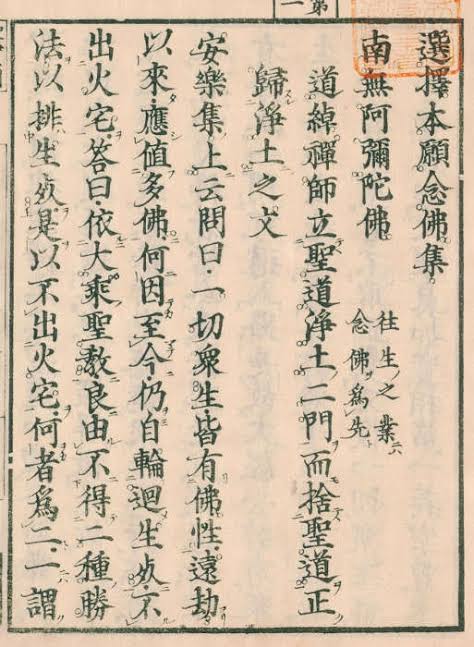 選擇本願念佛集
南無阿彌陀佛
往生之業
念佛爲先
道綽禪師立聖道淨土二門而捨聖道正
歸淨土之文
安樂集上云問曰一切衆生皆有佛性遠劫
以來應値多佛何因至今仍自輪迴生死不
出火宅答曰依大乘聖教良由不得二種勝
法以排生死是以不出火宅何者爲二一謂